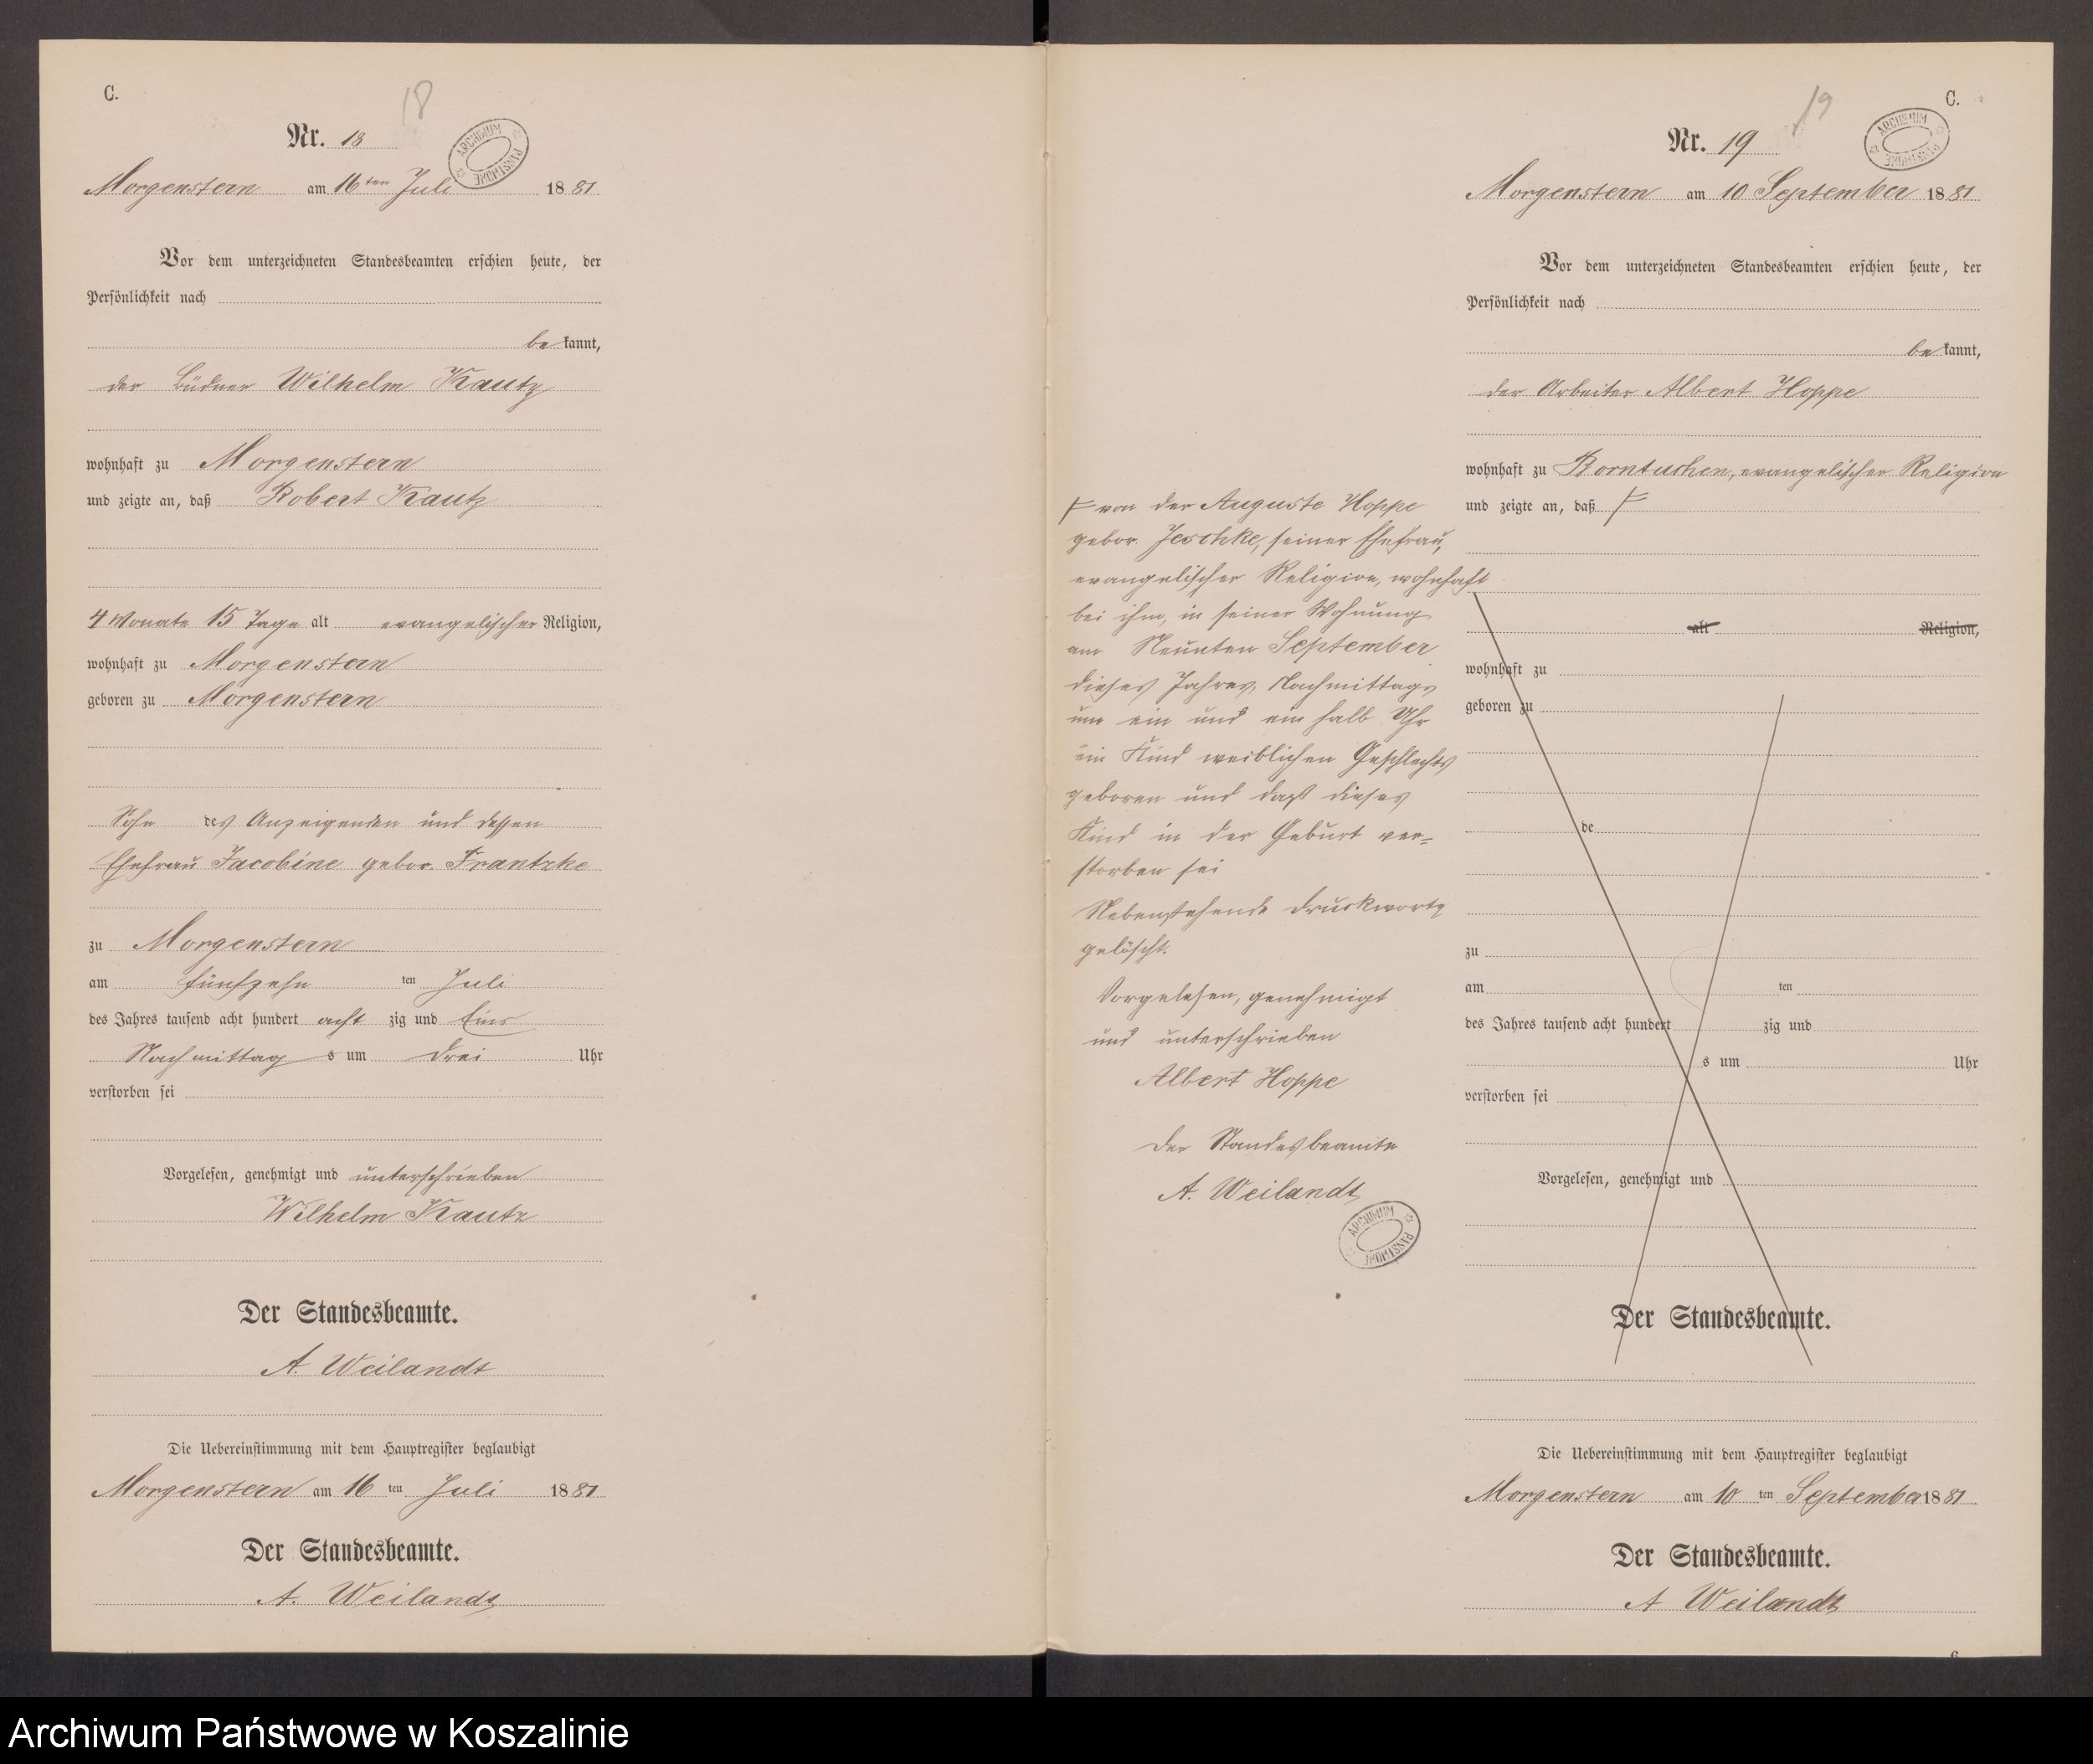 C.
18
Nr. 18
ARCHIWUM PAŃSTWOWE
Morgenstern am 16ten Juli 1881
Vor dem unterzeichneten Standesbeamten erschien heute, der
Persönlichkeit nach
bekannt,
der Büdner Wilhelm Kautz
wohnhaft zu Morgenstern
und zeigte an, daß Robert Kautz
4 Monate 15 Tage alt evangelischer Religion,
wohnhaft zu Morgenstern
geboren zu Morgenstern
Sohn des Anzeigenden und dessen
Ehefrau Jacobine gebor. Frantzke
zu Morgenstern
am fünfzehn ten Juli
des Jahres tausend acht hundert acht zig und Eins
Nachmittag s um drei Uhr
verstorben sei
Vorgelesen, genehmigt und unterschrieben
Wilhelm Kautz
Der Standesbeamte.
A. Weilandt
Die Uebereinstimmung mit dem Hauptregister beglaubigt
Morgenstern am 16 ten Juli 1881
Der Standesbeamte.
A. Weilandt
C.
19
Nr. 19
ARCHIWUM PAŃSTWOWE
Morgenstern am 10 September 1881
Vor dem unterzeichneten Standesbeamten erschien heute, der
Persönlichkeit nach
bekannt,
der Arbeiter Albert Hoppe
wohnhaft zu Borntuchen, evangelischer Religion
und zeigte an, daß
von der Auguste Hoppe
gebor. Jeschke, seiner Ehefrau,
evangelischer Religion, wohnhaft
bei ihm, in seiner Wohnung
am Neunten September
dieses Jahres, Nachmittags
um ein und ein halb Uhr
ein Kind weiblichen Geschlechts
geboren und daß dieses
Kind in der Geburt ver=
storben sei
Nebenstehende Druckworte
gelöscht.
Vorgelesen, genehmigt
und unterschrieben
Albert Hoppe
Der Standesbeamte
A. Weilandt
ARCHIWUM PAŃSTWOWE
alt Religion,
wohnhaft zu
geboren zu
de
zu
am ten
des Jahres tausend acht hundert zig und
s um Uhr
verstorben sei
Vorgelesen, genehmigt und
Der Standesbeamte.
Die Uebereinstimmung mit dem Hauptregister beglaubigt
Morgenstern am 10 ten September 1881
Der Standesbeamte.
A Weilandt
Archiwum Państwowe w Koszalinie